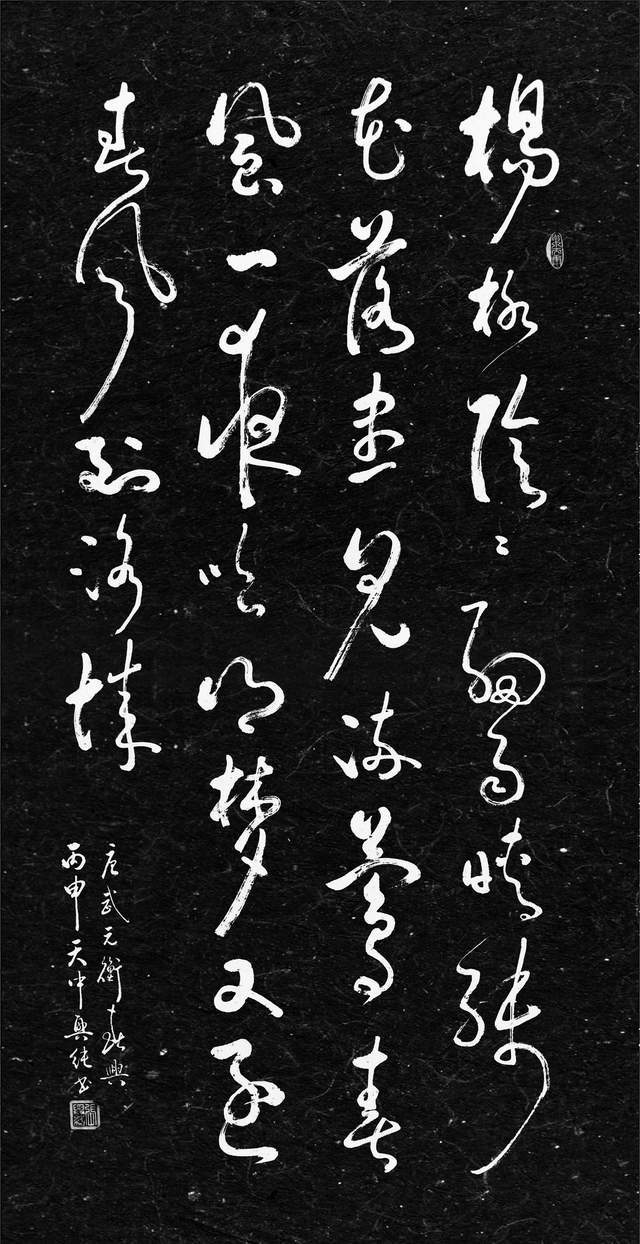 楊柳陰陰細雨晴殘
花落盡見流鶯春
風一夜吹鄉梦又逐
春風到洛城
唐武元衡春興
丙申天中興純书